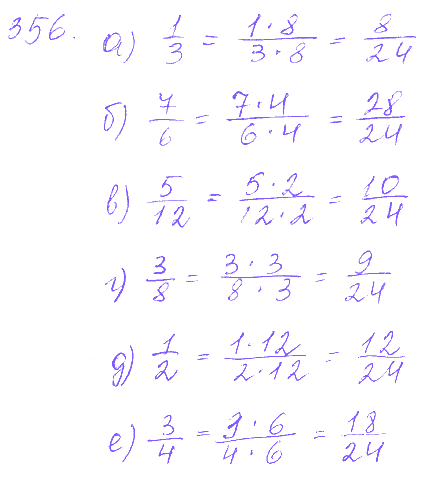 356. а) 1/3 = 1·8/3·8 = 8/24
б) 7/6 = 7·4/6·4 = 28/24
в) 5/12 = 5·2/12·2 = 10/24
г) 3/8 = 3·3/8·3 = 9/24
д) 1/2 = 1·12/2·12 = 12/24
е) 3/4 = 3·6/4·6 = 18/24